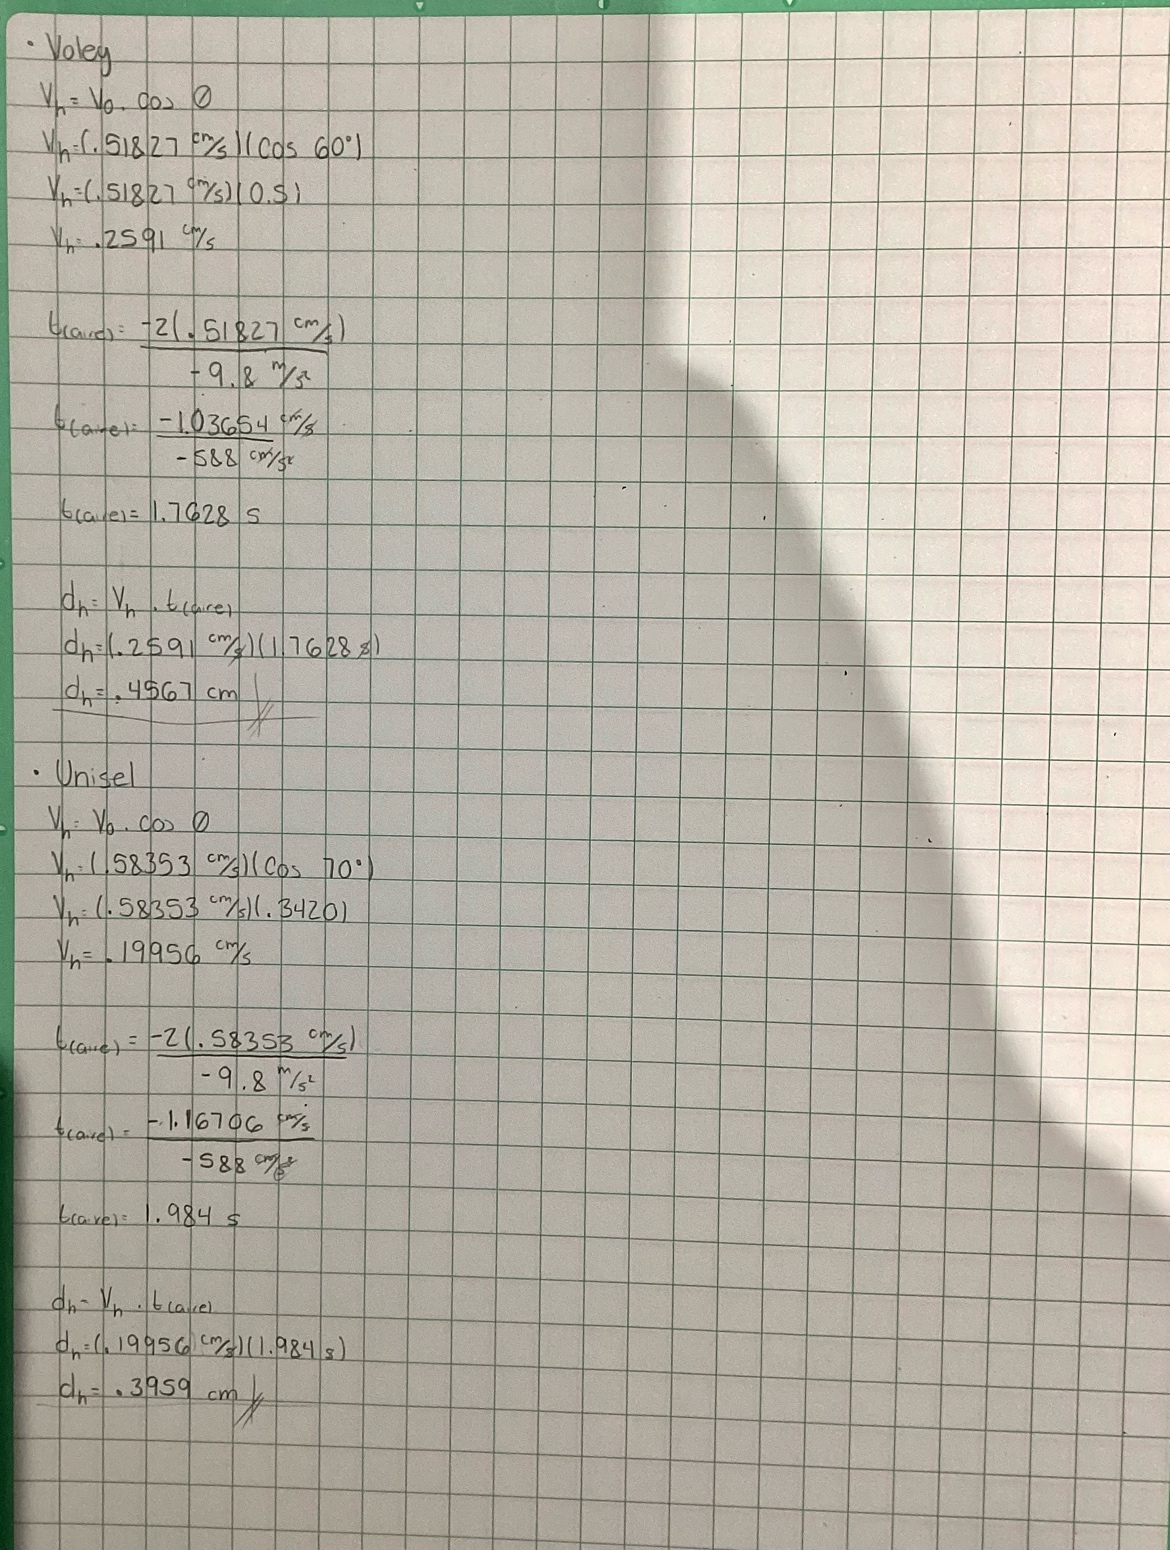 · Voley
Vh = Vo . cos Ø
Vh = (.51827 cm/s)(cos 60°)
Vh = (.51827 cm/s)(0.5)
Vh = .2591 cm/s
t(aire) = -2(.51827 cm/s)
-9.8 m/s²
t(aire) = -1.03654 cm/s
-588 cm/s²
t(aire) = 1.7628 s
dh = Vh . t(aire)
dh = (.2591 cm/s)(1.7628 s)
dh = .4567 cm
· Unisel
Vh = Vo . cos Ø
Vh = (.58353 cm/s)(cos 70°)
Vh = (.58353 cm/s)(.3420)
Vh = .19956 cm/s
t(aire) = -2(.58353 cm/s)
-9.8 m/s²
t(aire) = -1.16706 cm/s
-588 cm/s²
t(aire) = 1.984 s
dh = Vh . t(aire)
dh = (.19956 cm/s)(1.984 s)
dh = .3959 cm